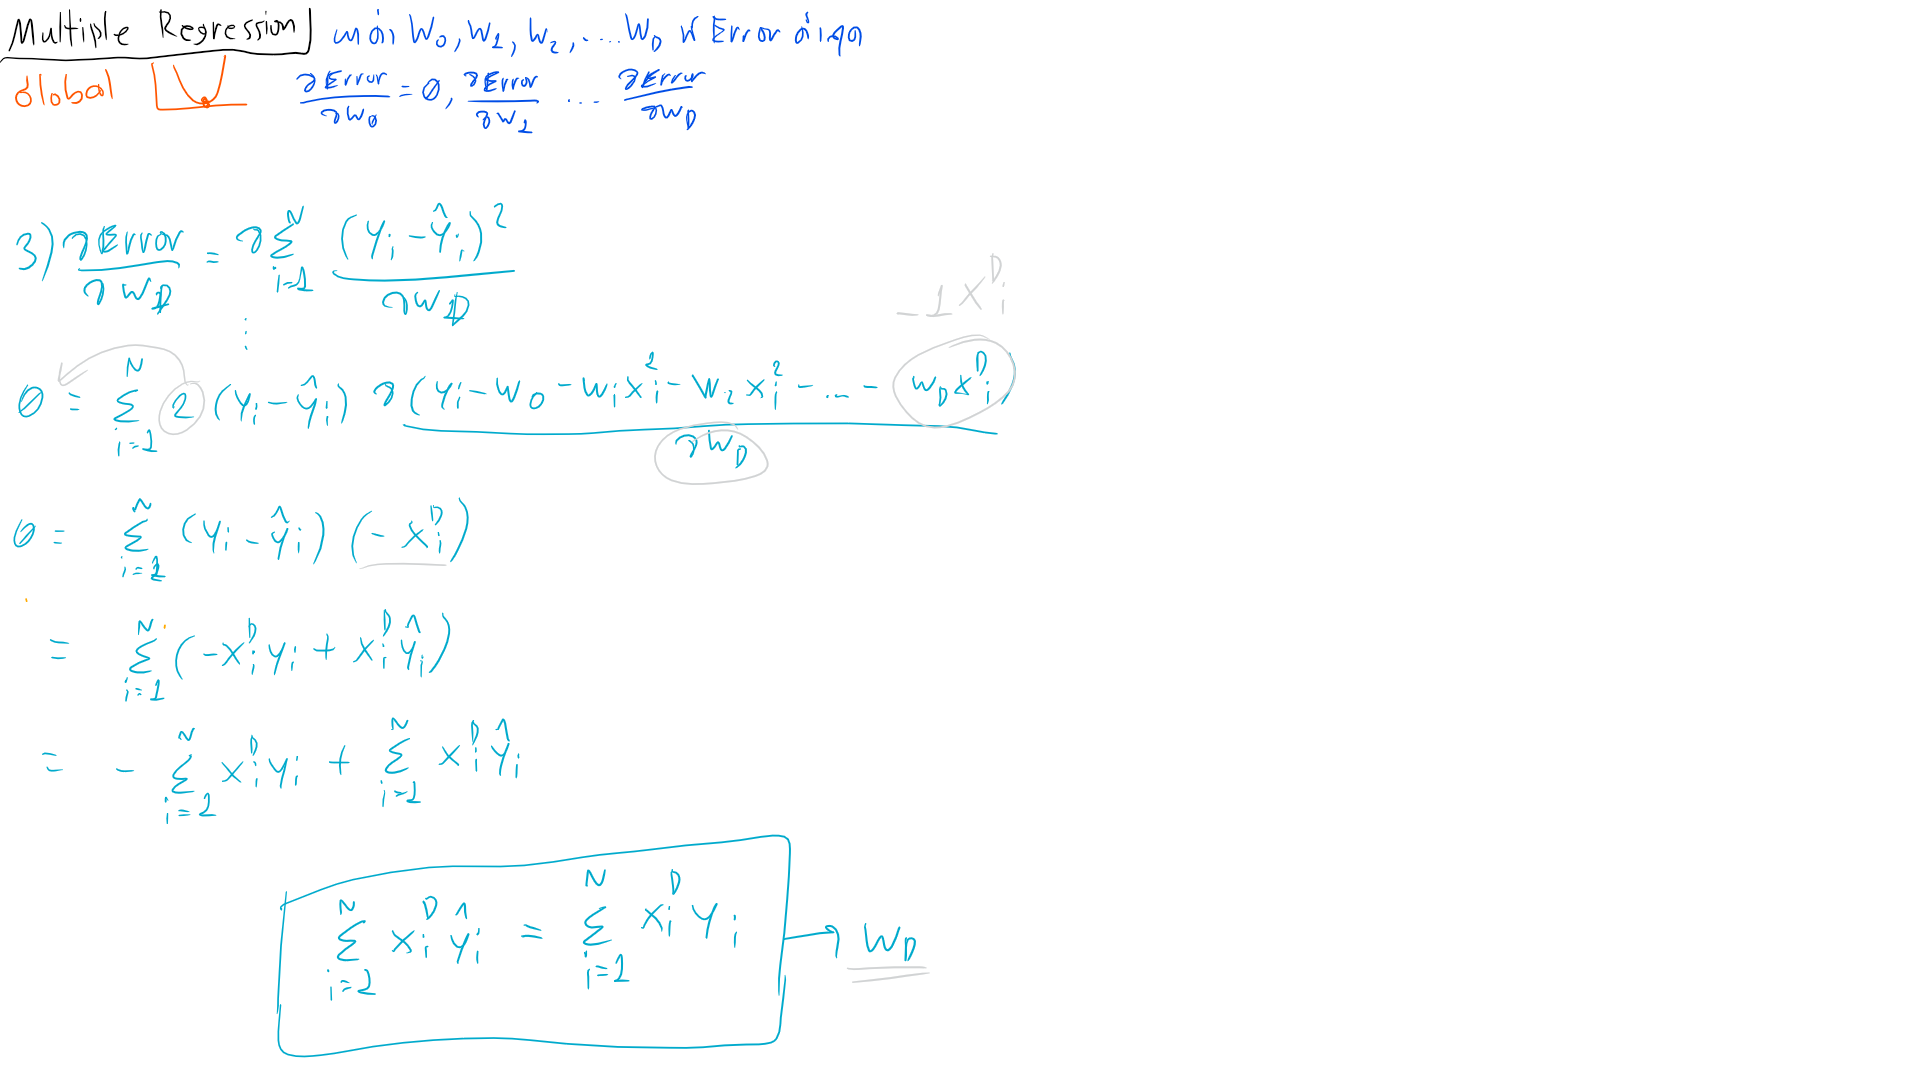 Multiple Regression หาค่า W₀, W₁, W₂, .... W_D ที่ Error ต่ำสุด
Global ∂Error/∂W₀ = 0, ∂Error/∂W₁ ... ∂Error/∂W_D
3) ∂Error/∂W_D = ∂ Σ_{i=1}^{N} (y_i - ŷ_i)² / ∂W_D
⋮
-1 x_i^D
0 = Σ_{i=1}^{N} 2 (y_i - ŷ_i) ∂(y_i - w₀ - w₁x_i² - w₂x_i² - ... - w_D x_i^D) / ∂W_D
0 = Σ_{i=1}^{N} (y_i - ŷ_i) (- x_i^D)
= Σ_{i=1}^{N} (-x_i^D y_i + x_i^D ŷ_i)
= - Σ_{i=1}^{N} x_i^D y_i + Σ_{i=1}^{N} x_i^D ŷ_i
Σ_{i=1}^{N} x_i^D ŷ_i = Σ_{i=1}^{N} x_i^D y_i → W_D